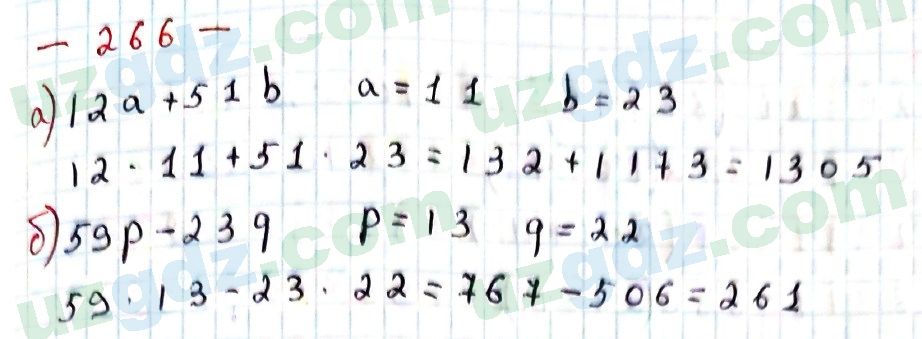 - 266 -
а) 12a + 51b a = 11 b = 23
12 · 11 + 51 · 23 = 132 + 1173 = 1305
б) 59p - 23q p = 13 q = 22
59 · 13 - 23 · 22 = 767 - 506 = 261
uzgdz.com
uzgdz.com
uzgdz.com
uzgdz.com